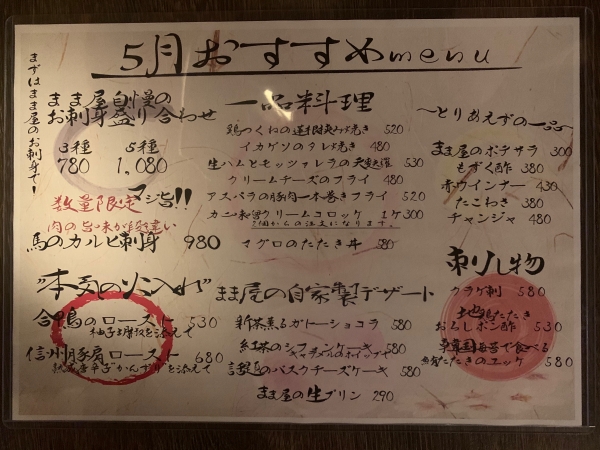 5月おすすめmenu
まずはまま屋のお刺身で！
まま屋自慢の
お刺身盛り合わせ
3種 5種
780 1,080
数量限定 マジ旨!!
肉の旨味が
馬のカルビ刺身 980
"本気の火入れ"
合鴨のロースト 530
柚子胡椒を添えて
信州豚肩ロースト 680
"かんずり"を添えて
一品料理
鶏つくねの 焼き 520
イカゲソのタレ焼き 480
生ハムとモッツァレラの 530
クリームチーズのフライ 480
アスパラの豚肉一本巻きフライ 520
カニ クリームコロッケ 1ケ300
2個からの注文になります。
マグロのたたき丼 580
まま屋の自家製デザート
新茶薫るガトーショコラ 580
紅茶のシフォンケーキ 580
キャラメルのホイップで
のバスクチーズケーキ 580
まま屋の生プリン 290
〜とりあえずの一品〜
まま屋のポテサラ 300
もずく酢 380
赤ウインナー 430
たこわさ 380
チャンジャ 480
刺し物
クラゲ刺 580
地鶏たたき
おろしポン酢 530
海苔で食べる
たたきのユッケ 580